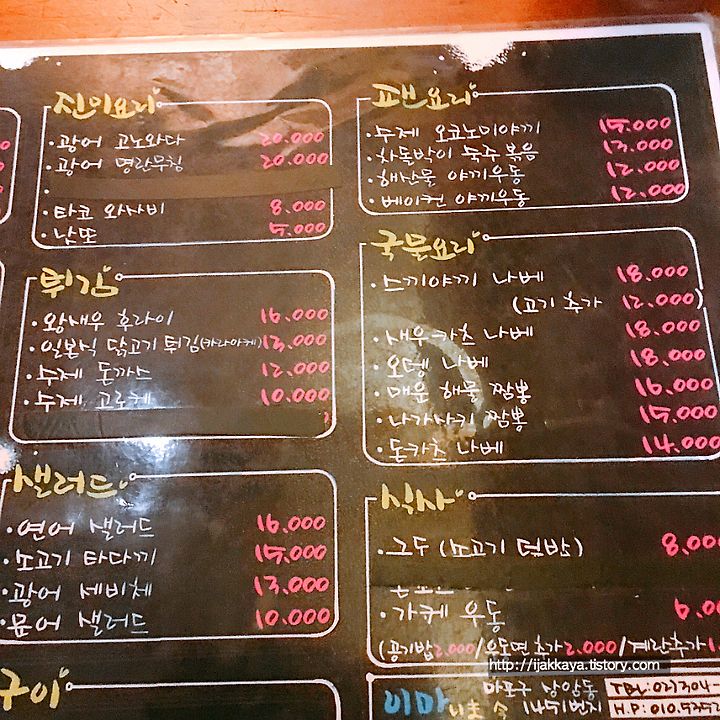 진미요리
· 광어 고노와다 20.000
· 광어 명란무침 20.000
· 타코 와사비 8.000
· 낫또 5.000
튀김
· 왕새우 후라이 16.000
· 일본식 닭고기 튀김(카라아케) 13.000
· 수제 돈까스 12.000
· 수제 고로케 10.000
샐러드
· 연어 샐러드 16.000
· 소고기 타다끼 15.000
· 광어 세비체 13.000
· 문어 샐러드 10.000
구이
팬요리
· 수제 오코노미야끼 15.000
· 차돌박이 숙주 볶음 13.000
· 해산물 야끼우동 12.000
· 베이컨 야끼우동 12.000
국물요리
· 스끼야끼 나베 18.000
(고기 추가 12.000)
· 새우카츠 나베 18.000
· 오뎅 나베 18.000
· 매운 해물 짬뽕 16.000
· 나가사키 짬뽕 15.000
· 돈카츠 나베 14.000
식사
· 규동 (소고기 덮밥) 8.000
· 가케 우동 6.000
(공기밥 2.000/우동면 추가 2.000/계란추가
http://ijakkaya.tistory.com
이마 마포구 상암동 TEL:02)304-
1451번지 H.P:010.5352